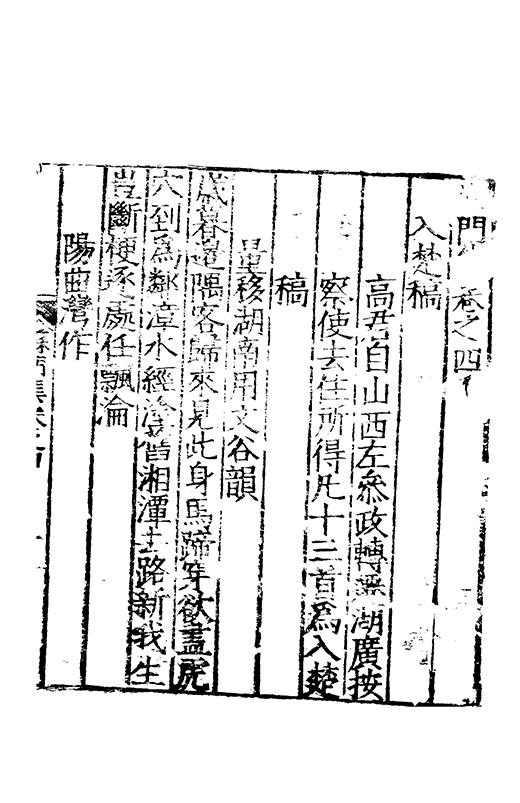 門 卷之四
入楚稿
高君自山西左參政轉 湖廣按
察使去住所得凡十三首爲入楚
稿
量移湖南用文谷韻
歲暮邊隅客歸來見此身馬蹄穿欲盡虎
穴到爲鄰漳水經 舊湘潭 路新我生
豈斷梗逐處任飄淪
陽曲灣作
蘇門集卷之四